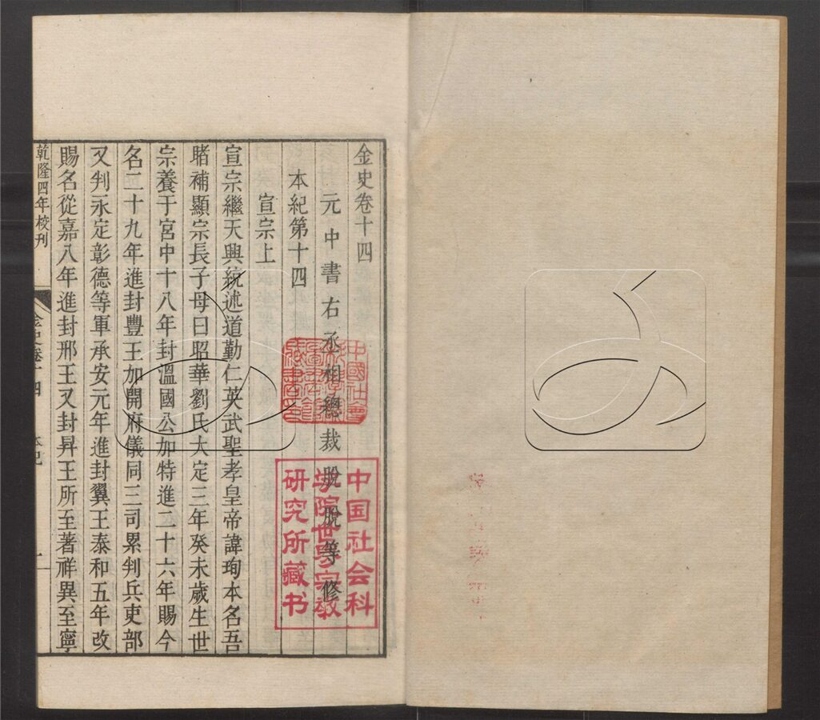 金史卷十四
元中書右丞相總裁脫脫等修
本紀第十四
宣宗上
宣宗繼天興統述道勤仁英武聖孝皇帝諱珣本名吾
睹補顯宗長子母曰昭華劉氏大定三年癸未歲生世
宗養于宮中十八年封溫國公加特進二十六年賜今
名二十九年進封豐王加開府儀同三司累判兵吏部
又判永定彰德等軍承安元年進封翼王泰和五年改
賜名從嘉八年進封邢王又封昇王所至著祥異至寧
乾隆四年校刊
金史卷十四
本紀
一
中国社会科
学院世界宗教
研究所藏书